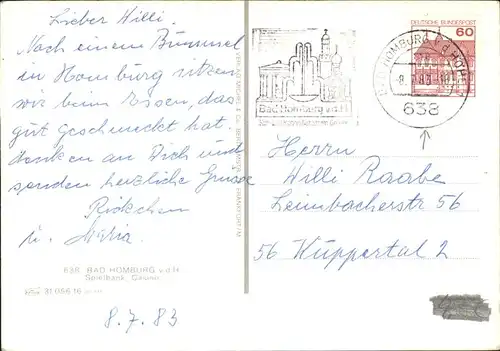 Lieber Willi.
Nach einem Bummel
in Homburg sitzen
wir beim Essen, das
gut geschmeckt hat.
denken an Dich und
senden herzliche Grüsse
u. Maria.
638 BAD HOMBURG v.d.H
Spielbank, Casino
31 056 16
8.7.83
DEUTSCHE BUNDESPOST
60
BAD HOMBURG v d HÖHE
638
Bad Homburg v.d.H.
Herrn
Willi Raabe
Lembacherstr 56
56 Wuppertal 2